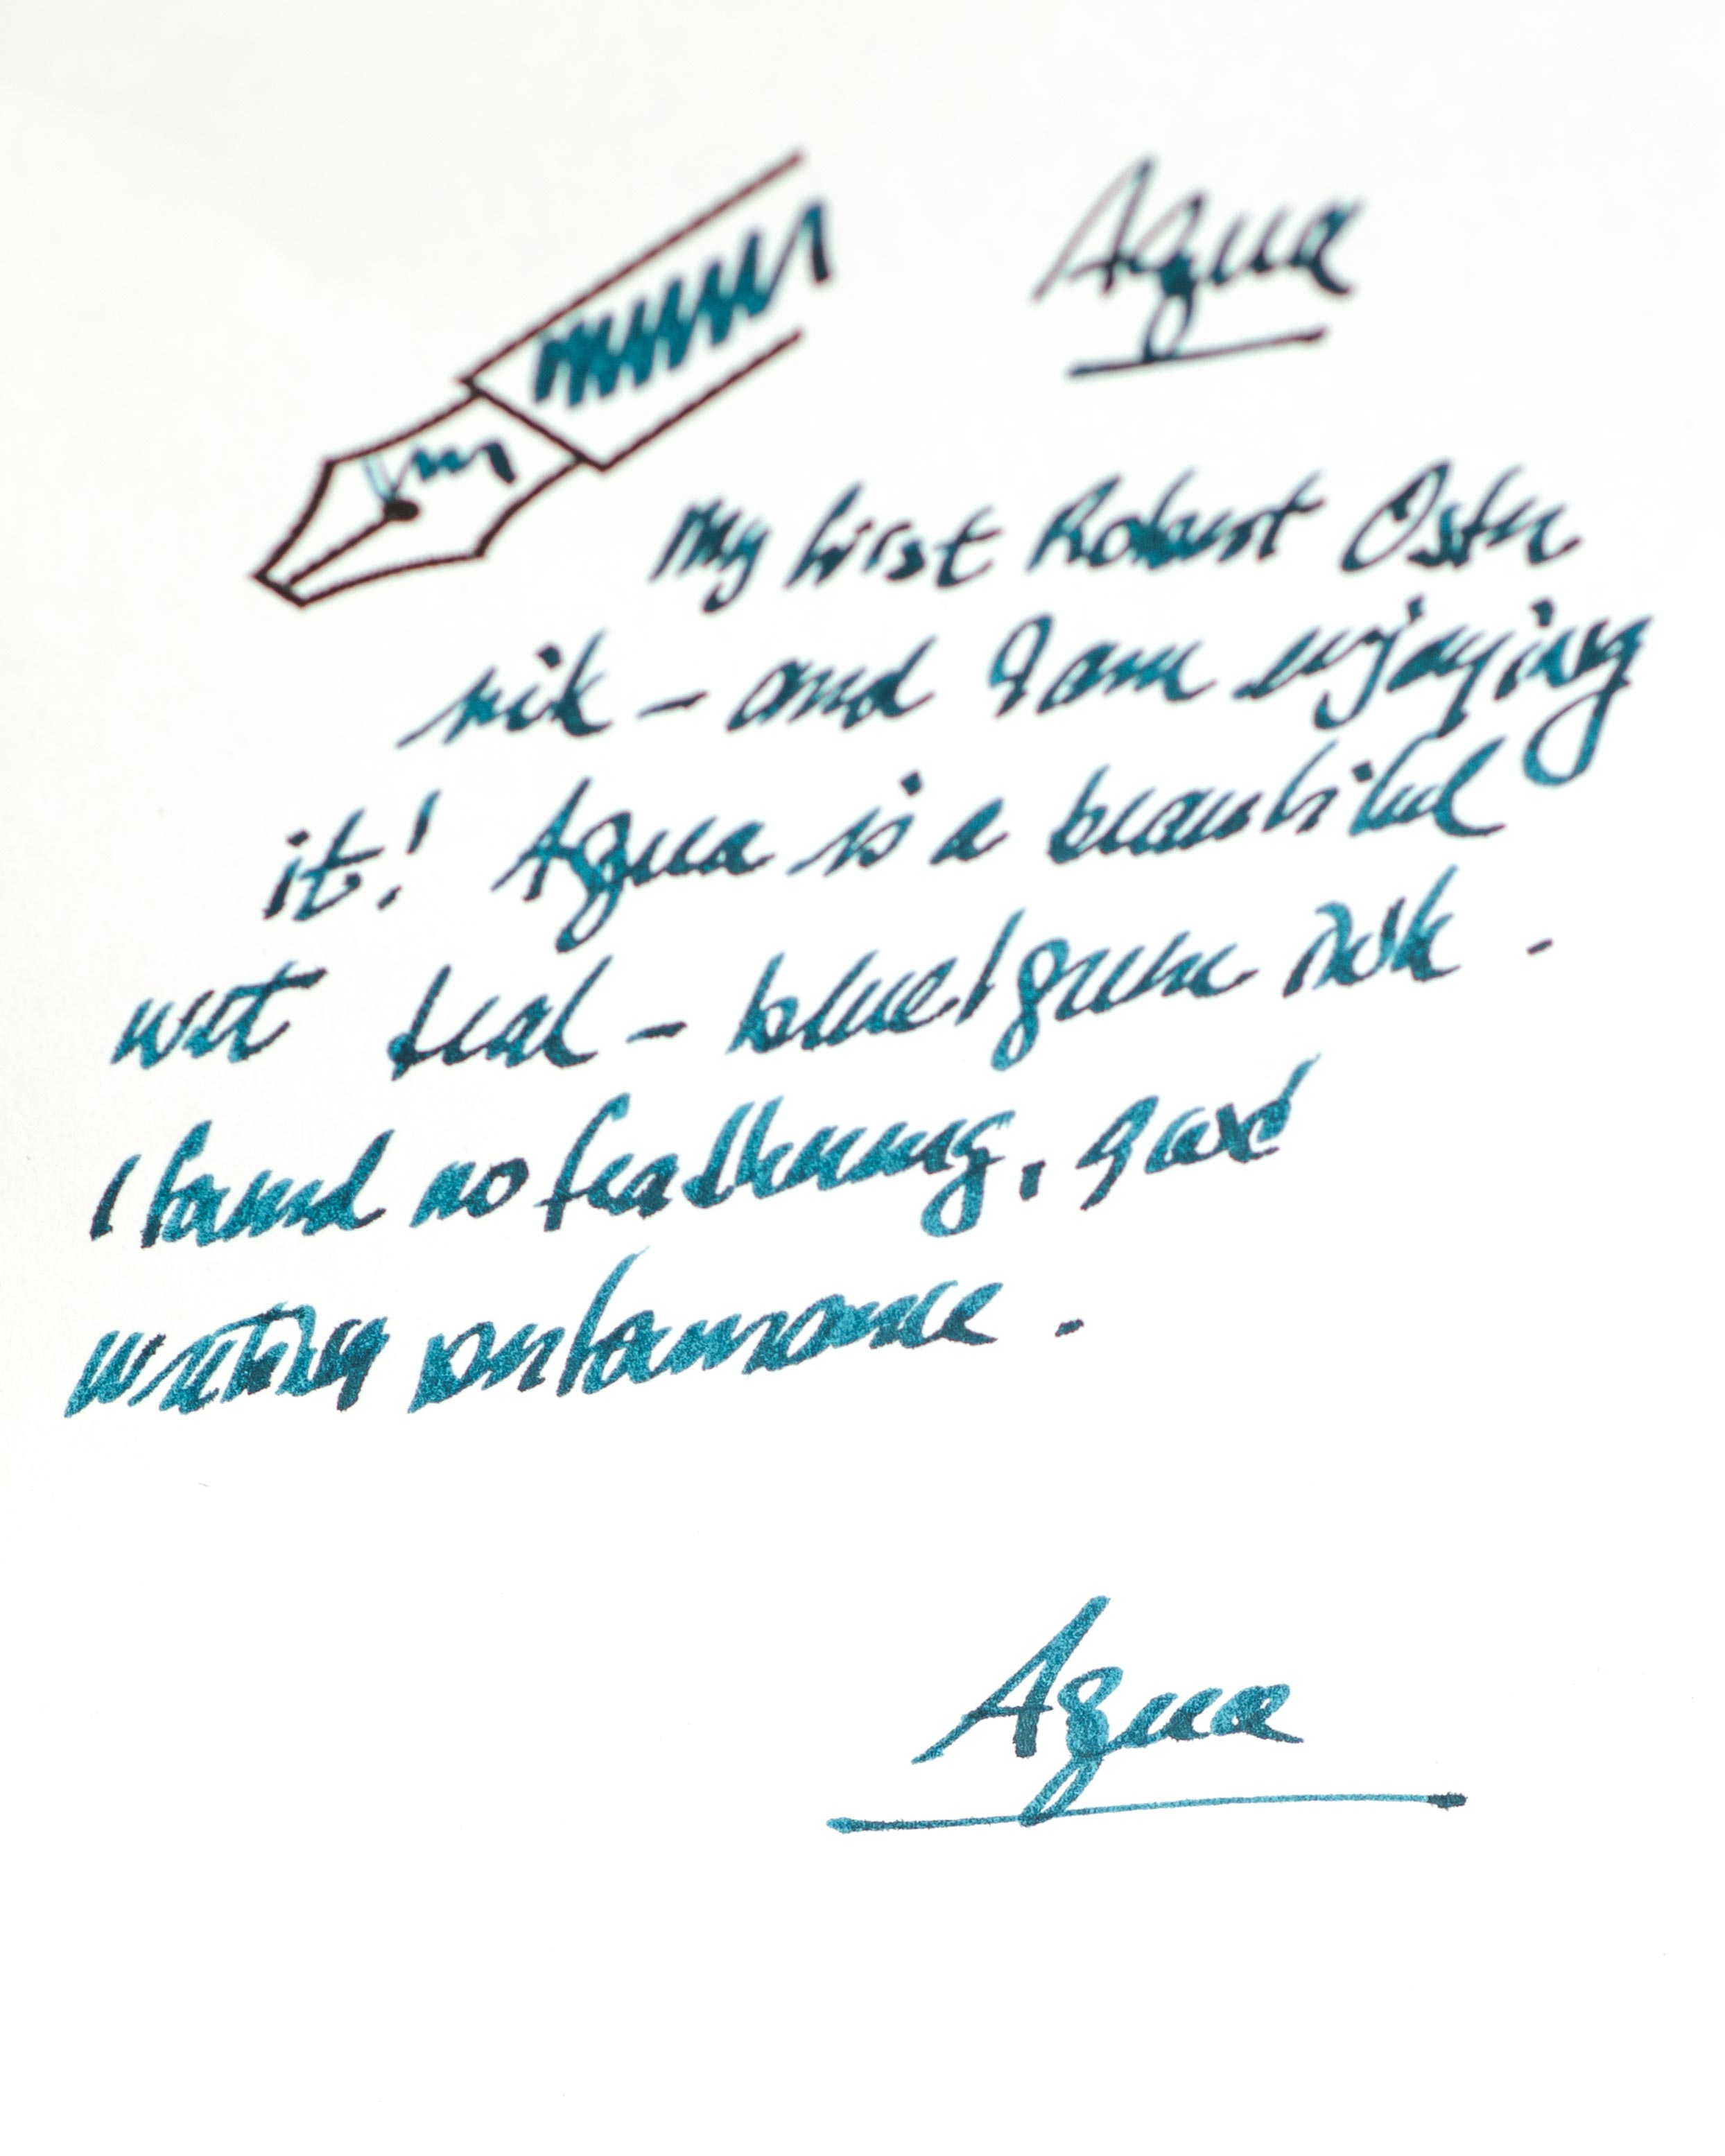 Aqua
My first Robert Oster
ink - and I am enjoying
it! Aqua is a beautiful
wet teal - blue/green ink.
I found no feathering, good
writing performance.
Aqua